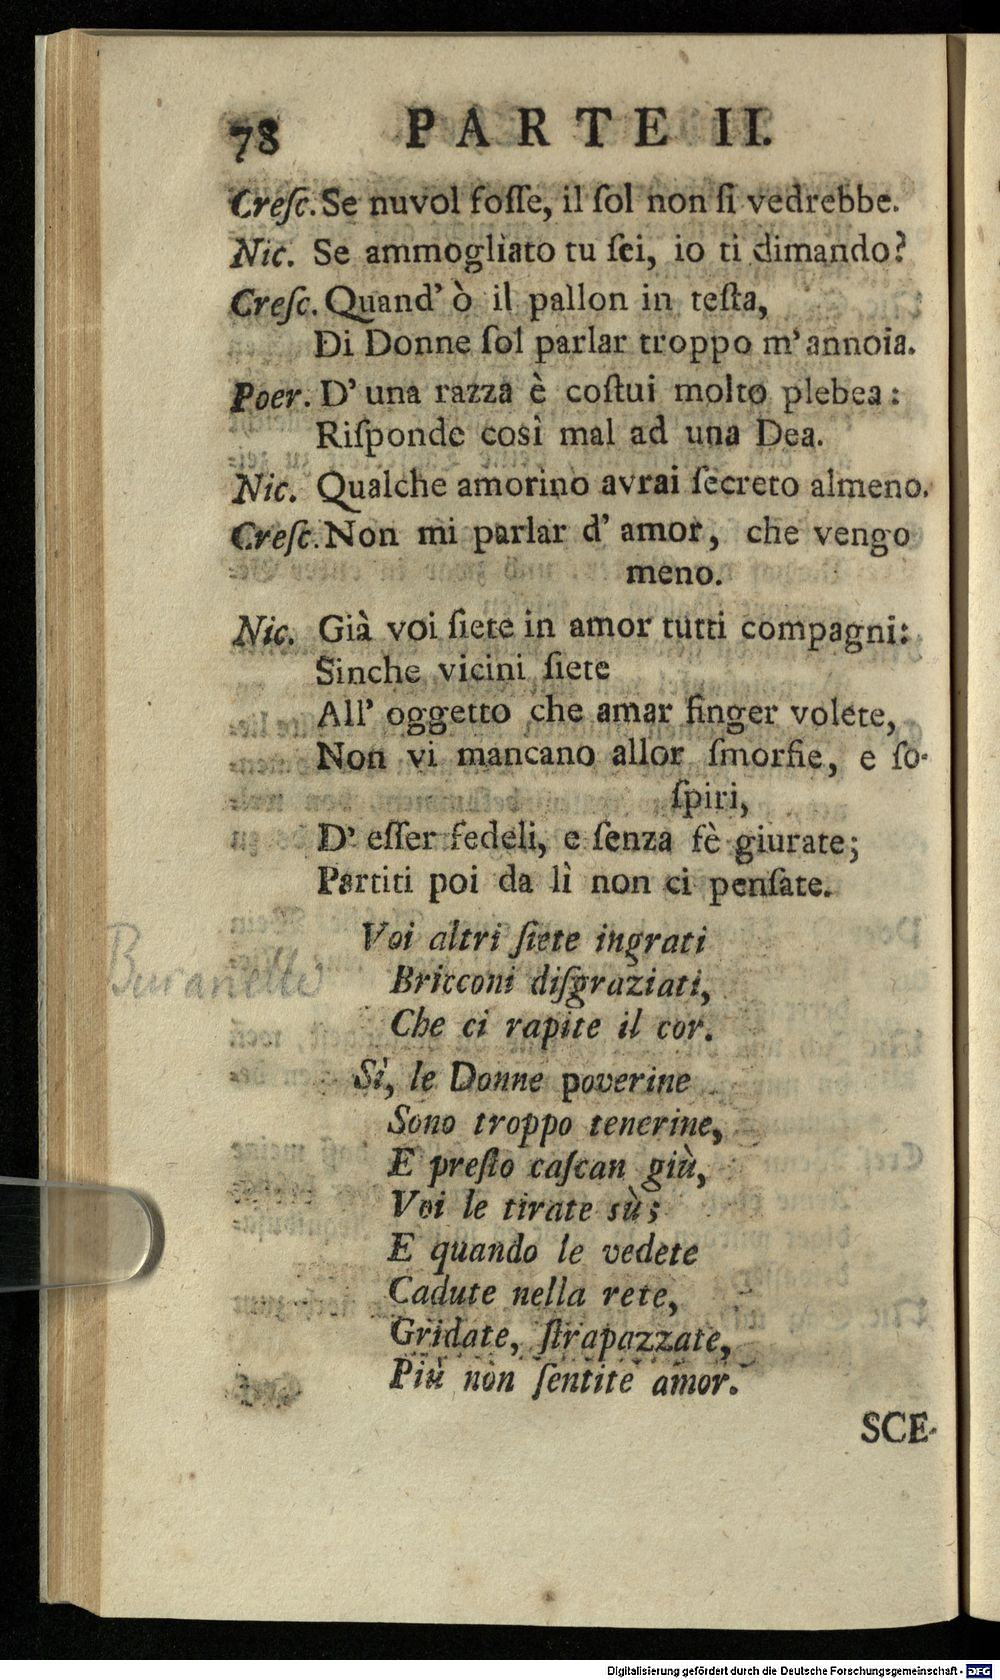 78 PARTE II.
Creſc. Se nuvol foſſe, il ſol non ſi vedrebbe.
Nic. Se ammogliato tu ſei, io ti dimando?
Creſc. Quand' ò il pallon in teſta,
Di Donne ſol parlar troppo m' annoia.
Poer. D' una razza è coſtui molto plebea:
Riſponde così mal ad una Dea.
Nic. Qualche amorino avrai ſecreto almeno.
Creſc. Non mi parlar d' amor, che vengo
meno.
Nic. Già voi ſiete in amor tutti compagni:
Sinche vicini ſiete
All' oggetto che amar finger volete,
Non vi mancano allor ſmorfie, e ſo-
ſpiri,
D' eſſer fedeli, e ſenza fè giurate;
Partiti poi da lì non ci penſate.
Voi altri ſiete ingrati
Buranello
Bricconi diſgraziati,
Che ci rapite il cor.
Sì, le Donne poverine
Sono troppo tenerine,
E preſto caſcan giù,
Voi le tirate sù;
E quando le vedete
Cadute nella rete,
Gridate, ſtrapazzate,
Più non ſentite amor.
SCE-
Digitalisierung gefördert durch die Deutsche Forschungsgemeinschaft - DFG